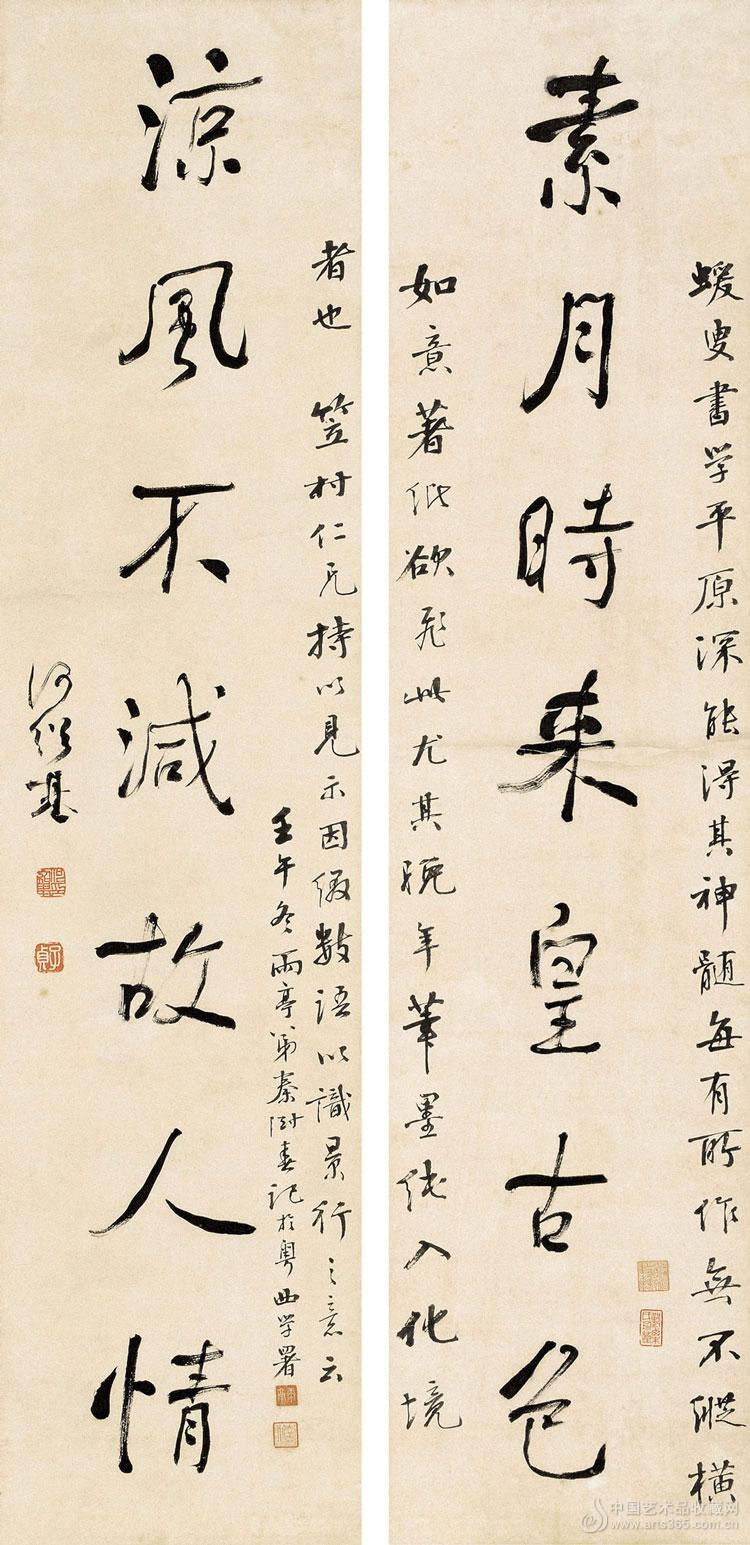 素月時来皇古色
蝯叟書学平原深能得其神髓每有所作無不縱橫
如意著紙欲飛此尤其晚年筆墨純入化境
涼風不減故人情
者也 笠村仁兄持以見示因綴數語以識景行之意云
壬午冬雨亭弟秦澍春記於粵西学署
何紹基
中国艺术品收藏网
www.arts365.com.cn